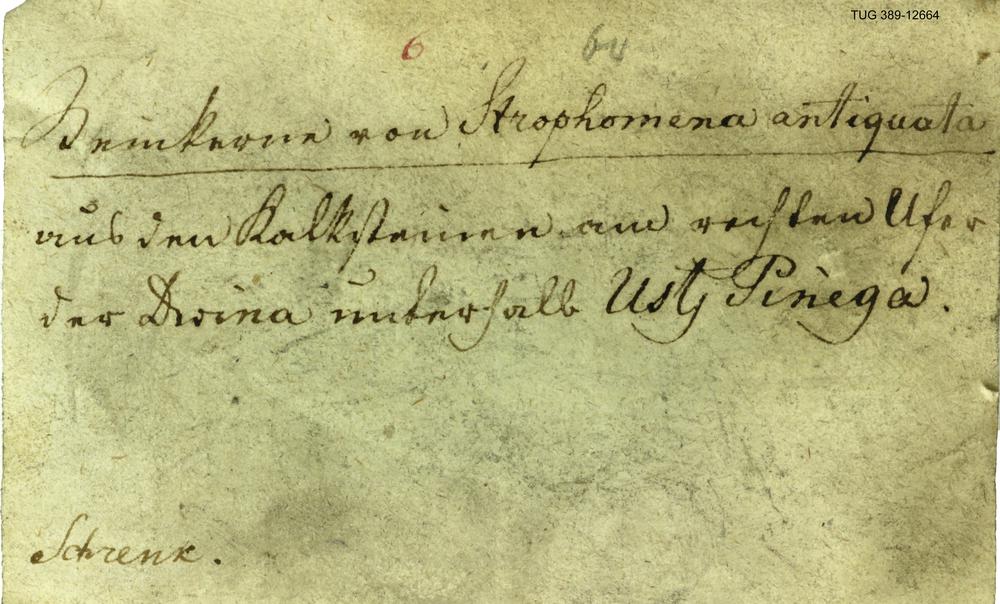 TUG 389-12664
6
Steinkerne von Strophomena antiquata
aus den Kalksteinen am rechten Ufer
der Dwina unterhalb Ustj Pinega.
Schrenk.